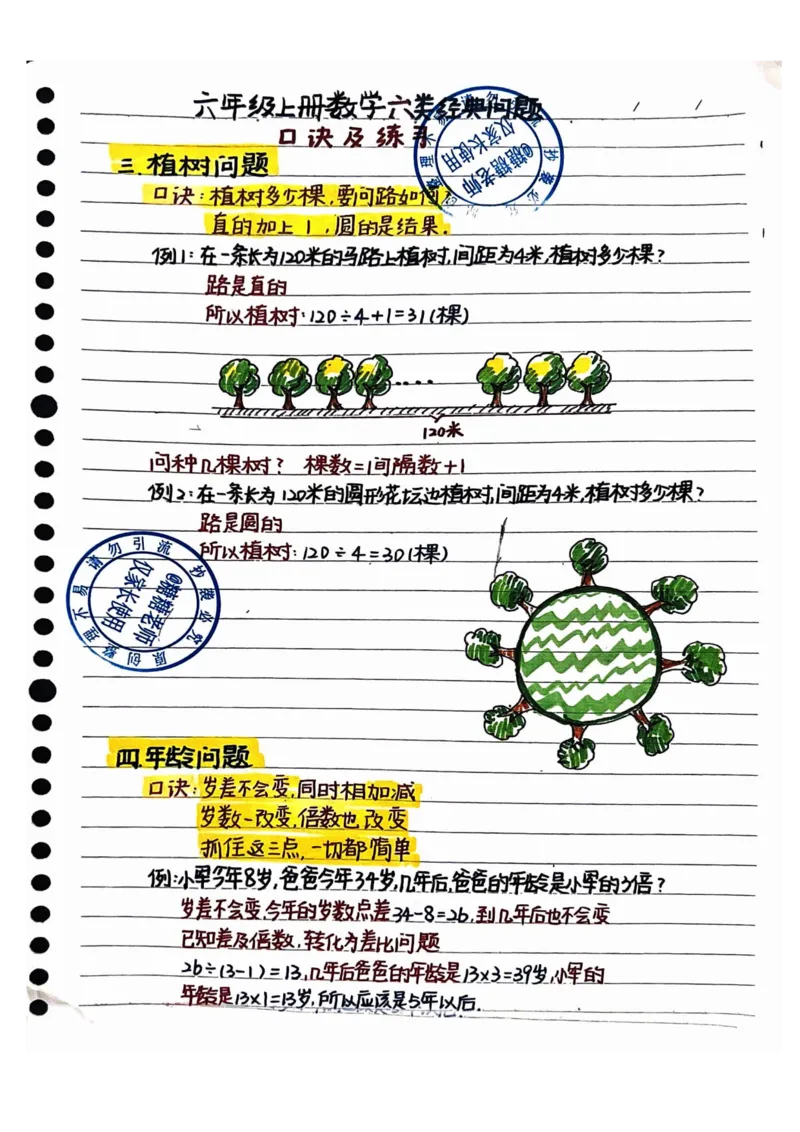 六年级上册数学六类经典问题
口诀及练习
三.植树问题
口诀:植树多少棵,要问路如何
直的加上1,圆的是结果.
例1:在一条长为120米的马路上植树,间距为4米,植树多少棵?
路是直的
所以植树:120÷4+1=31(棵)
120米
问种几棵树? 棵数=间隔数+1
例2:在一条长为120米的圆形花坛边植树,间距为4米,植树多少棵?
路是圆的
所以植树:120÷4=30(棵)
原创整理不易 请勿引流 抄袭必究
@糖糖老师
仅家长使用
四.年龄问题
口诀:岁差不会变,同时相加减
岁数一改变,倍数也改变
抓住这三点,一切都简单
例:小军今年8岁,爸爸今年34岁,几年后,爸爸的年龄是小军的3倍?
岁差不会变,今年的岁数点差34-8=26,到几年后也不会变
已知差及倍数,转化为差比问题
26÷(3-1)=13,几年后爸爸的年龄是13×3=39岁,小军的
年龄是13×1=13岁,所以应该是5年以后.